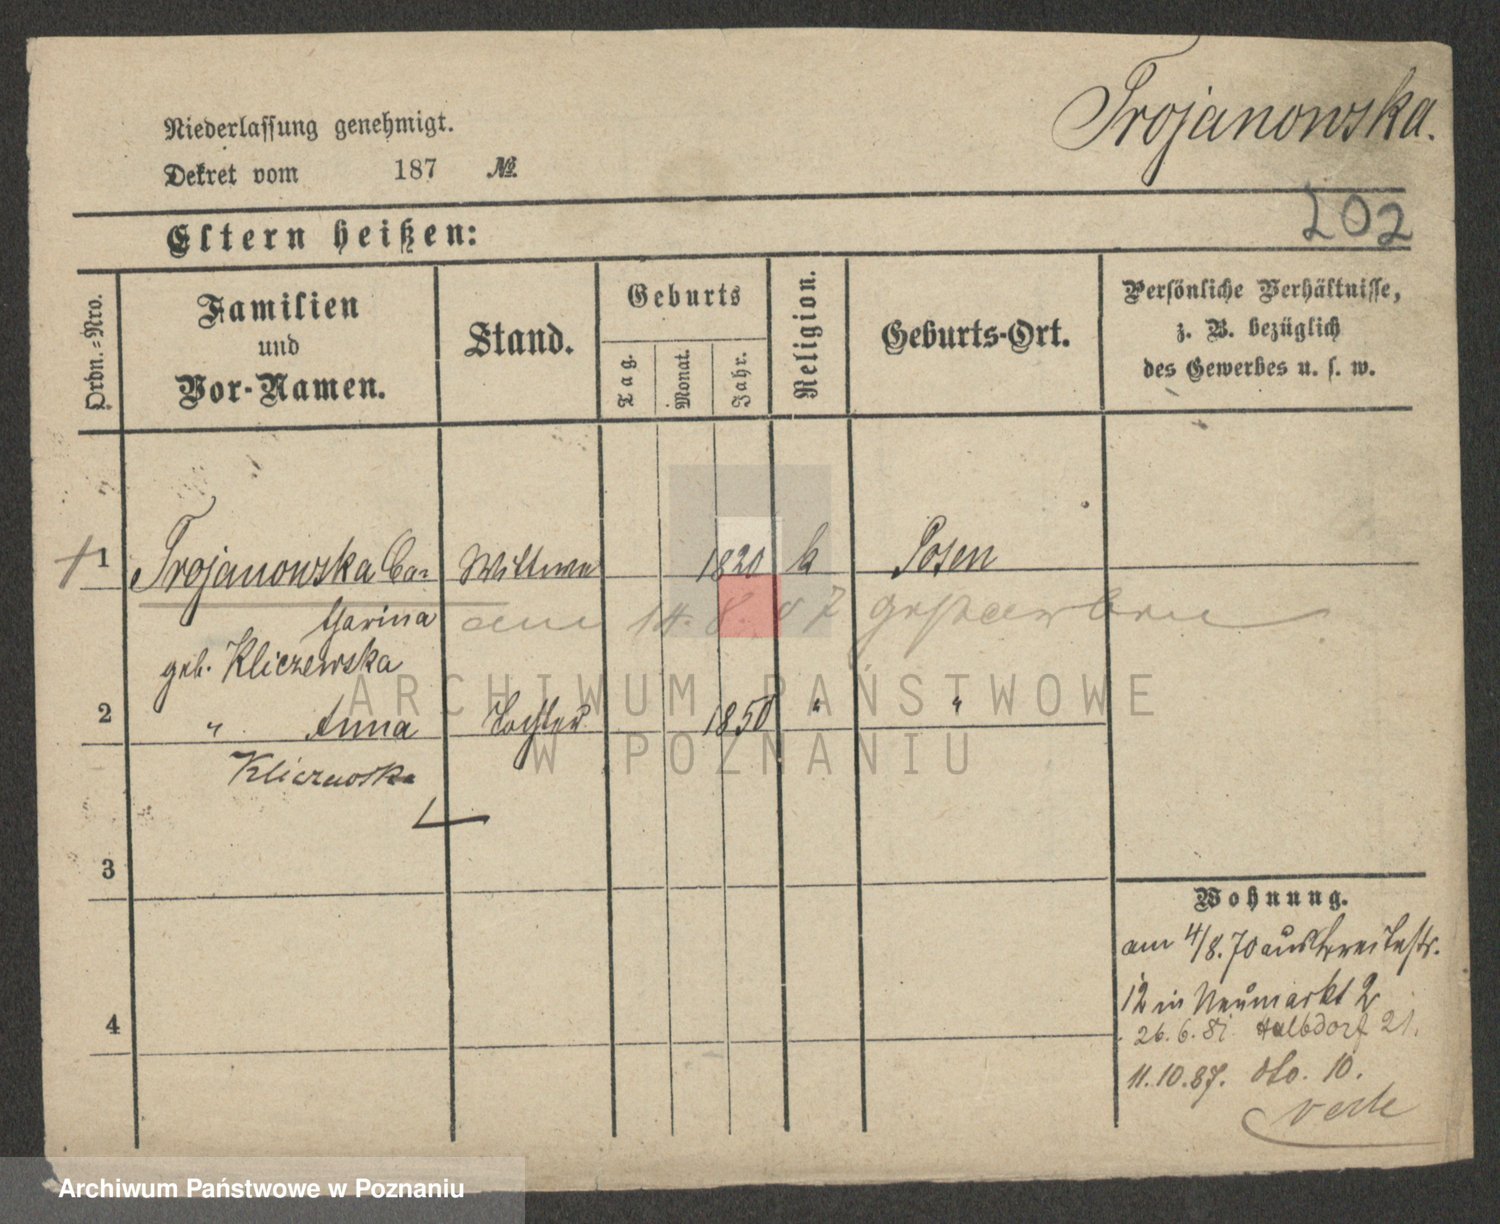 Trojanowska.
Niederlassung genehmigt.
Dekret vom 187 №
202
Eltern heißen:
Ordn.-Nro.
Familien
und
Vor-Namen.
Stand.
Geburts
Tag.
Monat.
Jahr.
Religion.
Geburts-Ort.
Persönliche Verhältnisse,
z. B. bezüglich
des Gewerbes u. s. w.
1 Trojanowska Ca= Wittwe 1820 k Posen
tharina am 14. 8. 87 gestorben
geb. Kliczewska
2 " Anna Tochter 1850 " "
Kliczewska
3
4
Wohnung.
am 4/8.70 aus Breitestr.
12 in Neumarkt 2
26.6.81 Halbdorf 21.
11.10.87. dto. 10.
ARCHIWUM PAŃSTWOWE
W POZNANIU
Archiwum Państwowe w Poznaniu